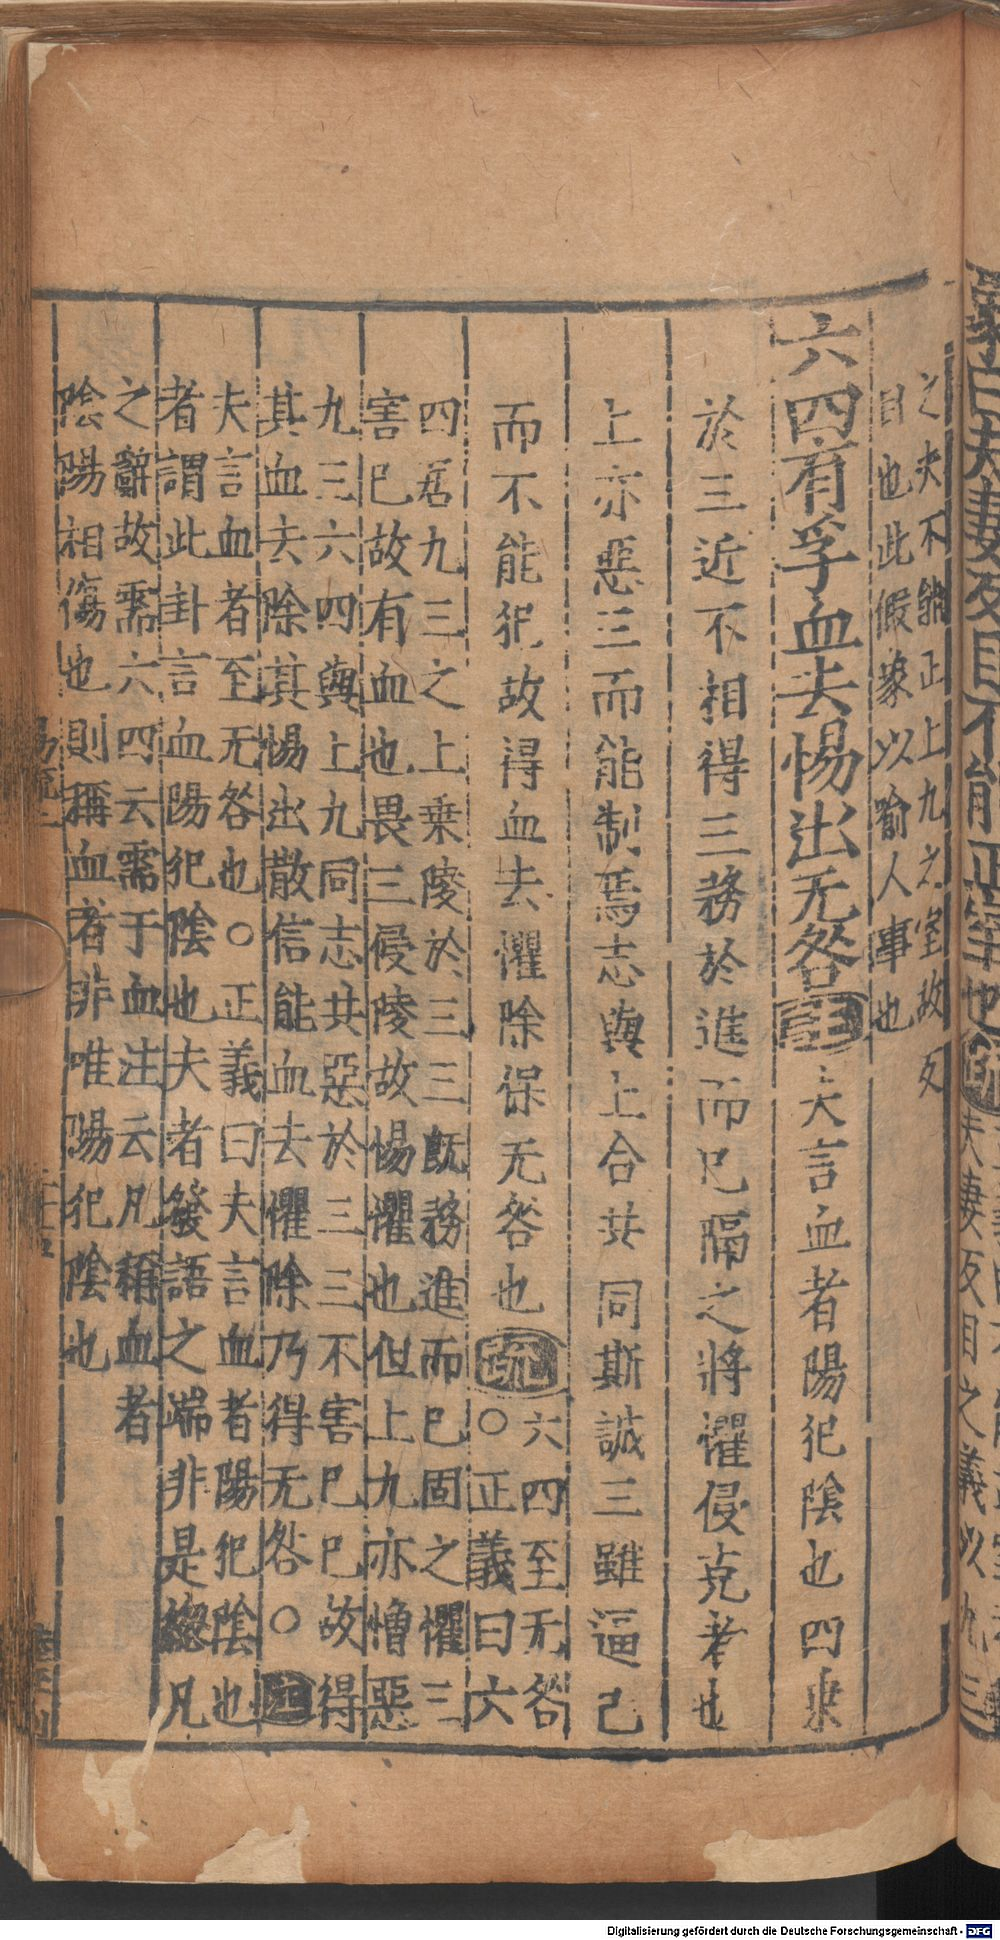 之夫不能正上九之室故反
目也此假象以喻人事也
六四有孚血去惕出无咎註夫言血者陽犯陰也四乗
於三近不相得三務於進而已隔之將懼侵克者也
上亦惡三而能制焉志與上合共同斯誠三雖逼己
而不能犯故得血去懼除保无咎也疏六四至无咎
○正義曰六
四居九三之上乗陵於三三既務進而已固之懼三
害已故有血也畏三侵陵故惕懼也但上九亦憎惡
九三六四與上九同志共惡於三三不害已已故得
其血去除其惕出散信能血去懼除乃得无咎○註
夫言血者至无咎也○正義曰夫言血者陽犯陰也
者謂此卦言血陽犯陰也夫者發語之端非是緫凡
之辭故需六四云需于血注云凡稱血者
陰陽相傷也則稱血者非唯陽犯陰也
Digitalisierung gefördert durch die Deutsche Forschungsgemeinschaft - DFG